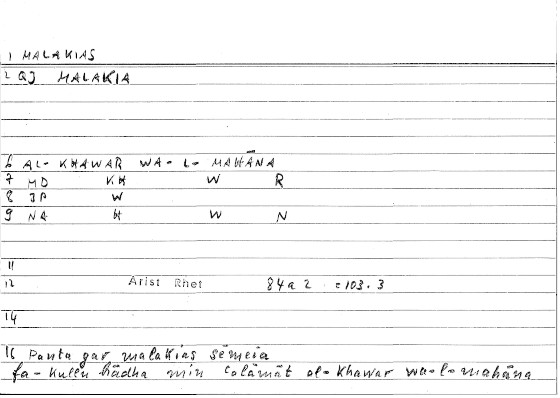 1 MALAKIAS
2 QJ MALAKIA
6 AL- KHAWAR WA- L- MAHĀNA
7 MD KH W R
8 JP W
9 NA H W N
11
12 Arist Rhet 84a2 =103.3
14
16 Panta gar malakias sēmeia
fa- kullu hādha min calāmāt al- khawar wa-l-mahāna